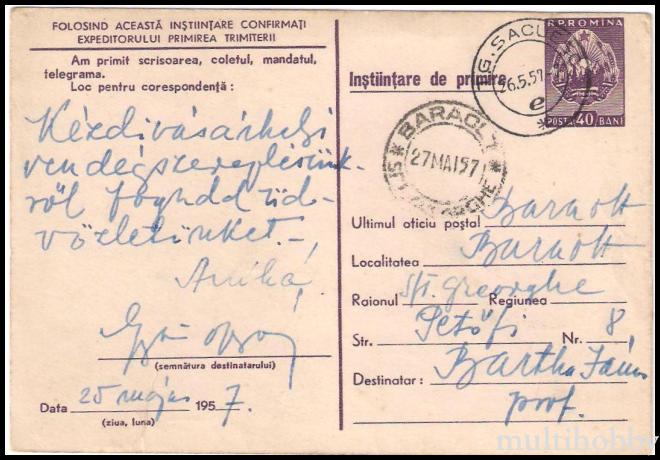 FOLOSIND ACEASTĂ INȘTIINȚARE CONFIRMAȚI
EXPEDITORULUI PRIMIREA TRIMITERII
Am primit scrisoarea, coletul, mandatul,
telegrama.
Loc pentru corespondență :
Kézdivásárhelyi
vendégszereplésünk-
ről fogadd üd-
vözletünket.–
Anikó,
(semnătura destinatarului)
Data 25 május 1957.
(ziua, luna)
R.P.ROMINA
POSTA 40 BANI
Inștiințare de primire
TG. SACU
26.5.57
e
BARAOLT
27 MAI 57
GHE
Ultimul oficiu poștal Baraolt
Localitatea Baraolt
Raionul Sft. Gheorghe Regiunea
Str. Petőfi Nr. 8
Destinatar : Bartha János
prof.
multihobby